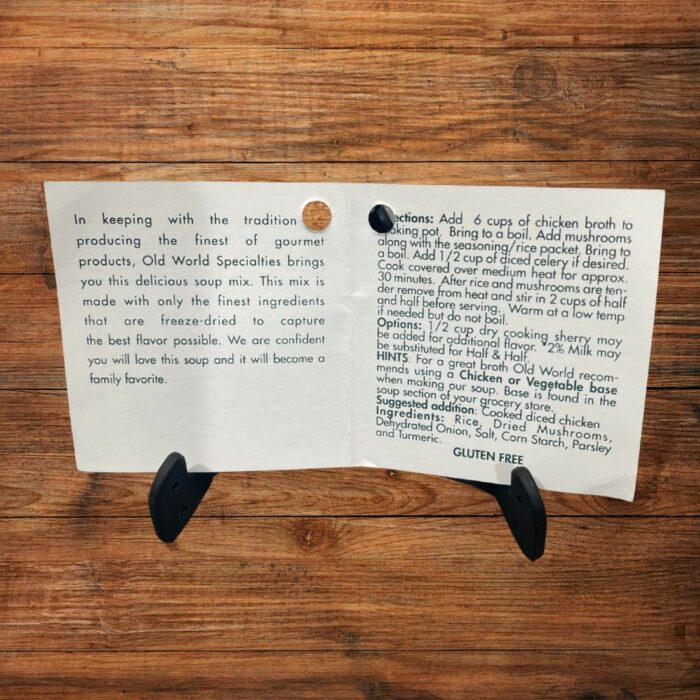 In keeping with the tradition
producing the finest of gourmet
products, Old World Specialties brings
you this delicious soup mix. This mix is
made with only the finest ingredients
that are freeze-dried to capture
the best flavor possible. We are confident
you will love this soup and it will become a
family favorite.
ections: Add 6 cups of chicken broth to
oking pot. Bring to a boil. Add mushrooms
along with the seasoning/rice packet. Bring to
a boil. Add 1/2 cup of diced celery if desired.
Cook covered over medium heat for approx.
30 minutes. After rice and mushrooms are ten-
der remove from heat and stir in 2 cups of half
and half before serving. Warm at a low temp
if needed but do not boil.
Options: 1/2 cup dry cooking sherry may
be added for additional flavor. *2% Milk may
be substituted for Half & Half.
HINTS: For a great broth Old World recom-
mends using a Chicken or Vegetable base
when making our soup. Base is found in the
soup section of your grocery store.
Suggested addition: Cooked diced chicken
Ingredients: Rice, Dried Mushrooms,
Dehydrated Onion, Salt, Corn Starch, Parsley
and Turmeric.
GLUTEN FREE